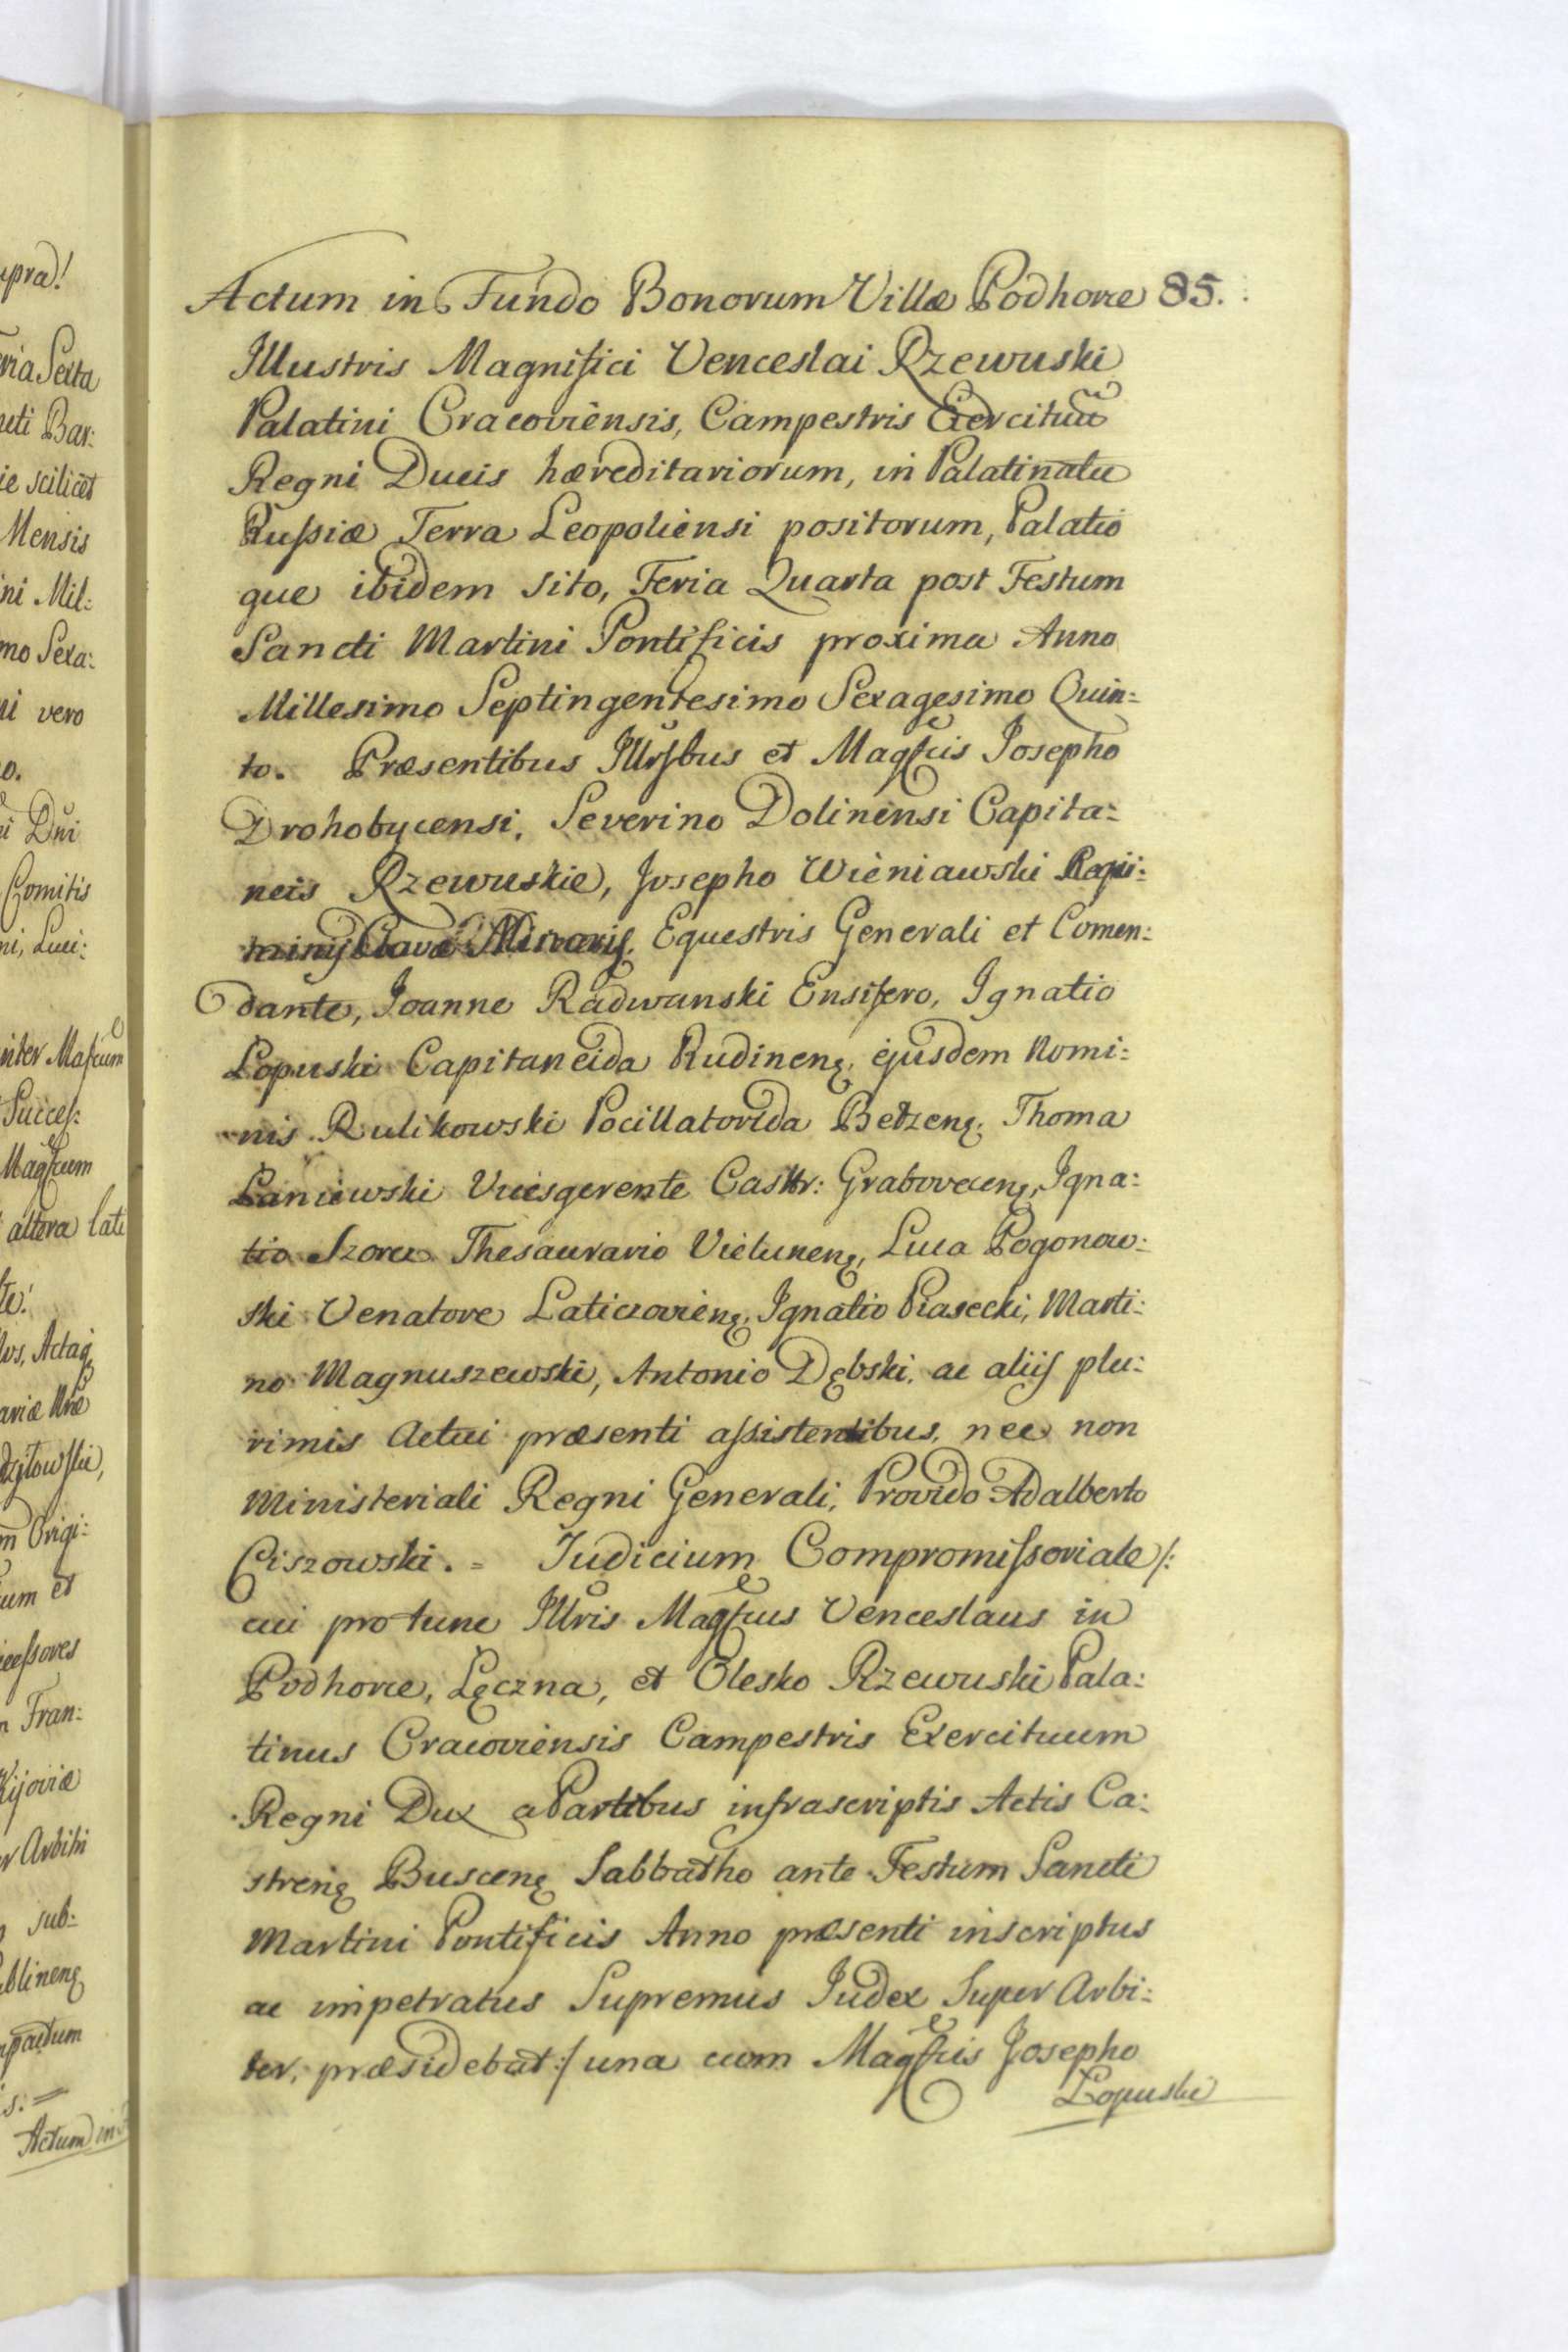 upra!
ria Sexta
ncti Bar:
ie scilicet
Mensis
ini Mil:
mo Sexa:
ni vero
o.
i Dni
Comitis
ni, Luci:
inter Mafcum
Succes:
Magfcum
altera lati
te!
los, Actaq
ariæ
m Origi:
um et
cessores
n Fran:
Kijoviæ
r Arbitri
sub:
ublineng
mpactum
s: =
Actum in
Actum in Fundo Bonorum Villæ Podhorce 85.
Illustris Magnifici Venceslai Rzewuski
Palatini Cracoviensis, Campestris Exercituũ
Regni Ducis hæreditariorum, in Palatinatu
Rußiæ Terra Leopoliensi positorum, Palatio
que ibidem sito, Feria Quarta post Festum
Sancti Martini Pontificis proxima Anno
Millesimo Septingentesimo Sexagesimo Quin:
to. Præsentibus Illrsbus et Magfcis Josepho
Drohobycensi, Severino Dolinensi Capita:
neis Rzewuskie, Josepho Wieniawski Regi:
minis Clavæ Equestris Generali et Comen:
dante, Joanne Radwanski Ensifero, Ignatio
Lopuski Capitaneida Rudineng, ejusdem Nomi:
nis Rulikowski Pocillatorida Betzeng, Thoma
Laniewski Vicesgerente Castr: Graboveceng, Igna:
tio Szorc Thesaurario Vieluneng, Luca Pogonow:
ski Venatore Laticzovieng, Ignatio Piasecki, Marti:
no Magnuszewski, Antonio Dębski, ac aliis plu:
rimis Actui præsenti aßistentibus, nec non
Ministeriali Regni Generali, Provido Adalberto
Ciszowski. = Judicium Compromißoriale /:
cui pro tunc Illris Magfcus Venceslaus in
Podhorce, Lęczna, et Olesko Rzewuski Pala:
tinus Cracoviensis Campestris Exercituum
Regni Dux a Partibus infrascriptis Actis Ca:
streng Busceng Sabbatho ante Festum Sancti
Martini Pontificis Anno præsenti inscriptus
ac impetratus Supremus Judex Super Arbi:
ter, præsidebat :/ una cum Magfcis Josepho
Lopuski